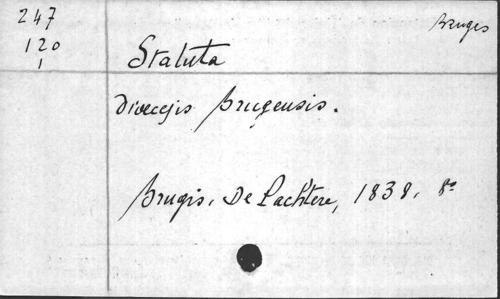 247
120
1
Bruges
Statuta
Diœcesis Brugensis.
Brugis, De Lachtere, 1838, 8º